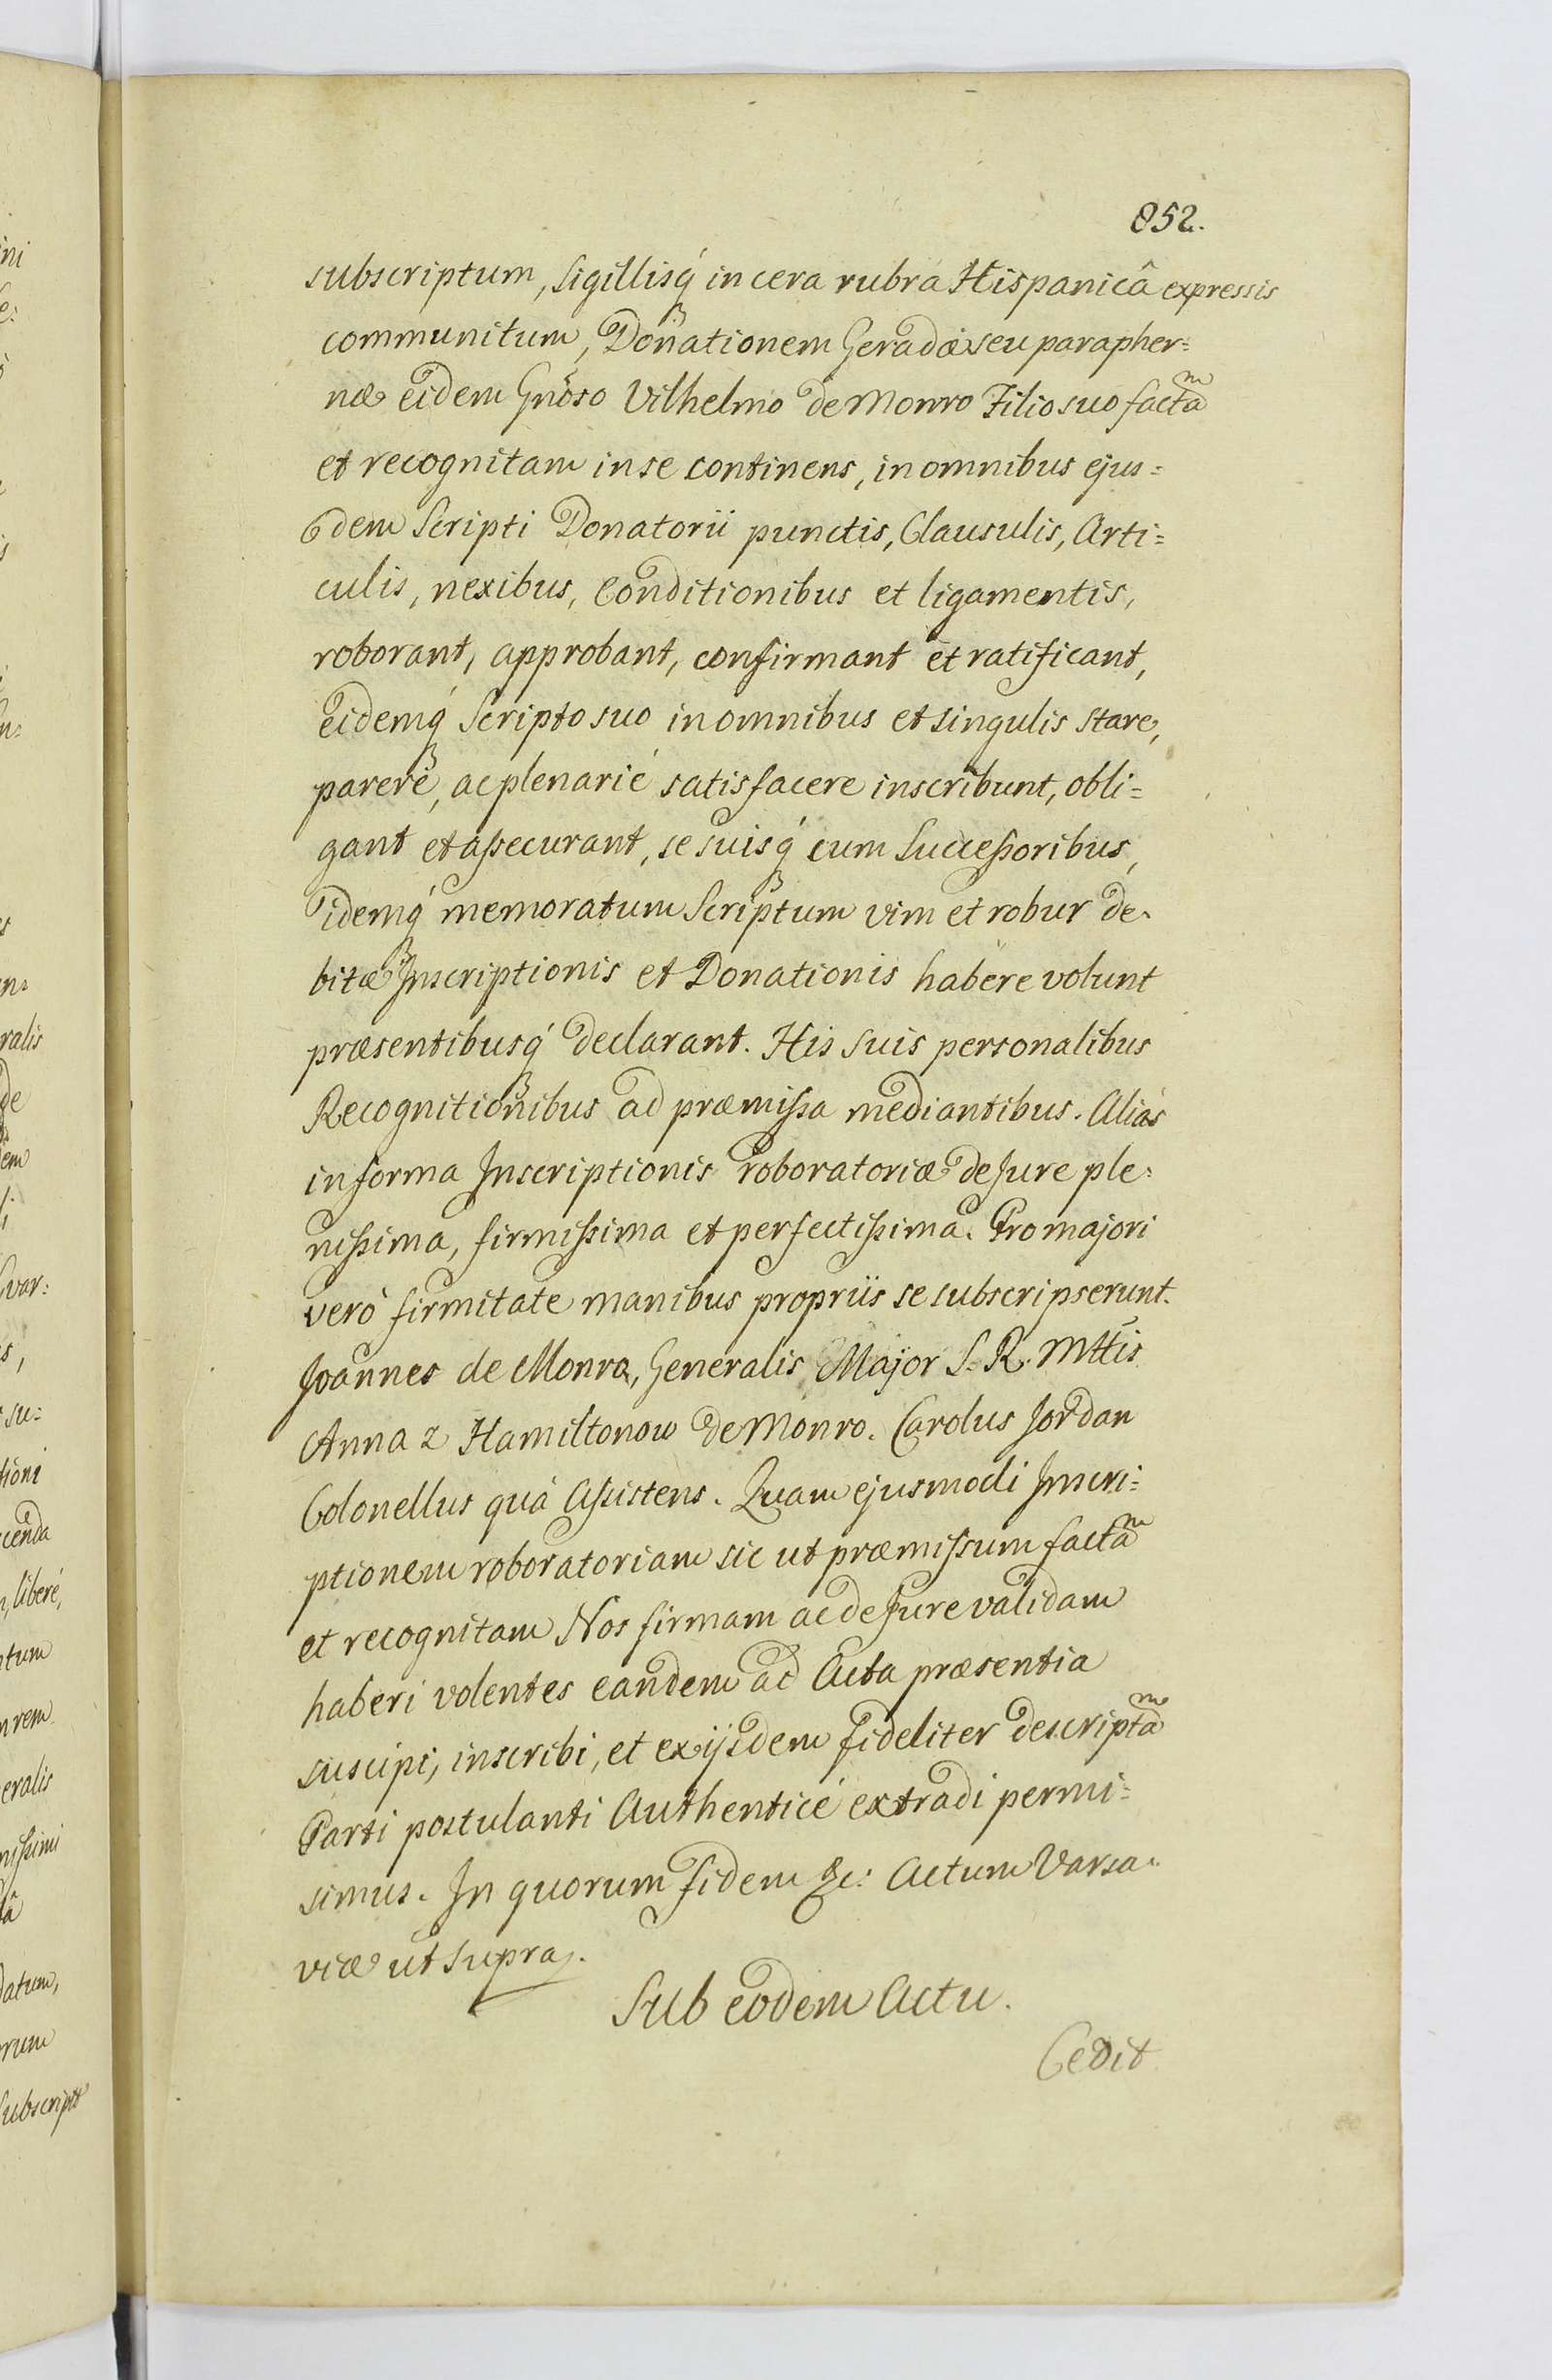 852.
subscriptum, Sigillisq́ in cera rubra Hispanicâ expressis
communitum, Donationem Geradæ seu parapher=
næ eidem Gnõso Vilhelmo de Monro Filio suo factaᵐ
et recognitam in se continens, in omnibus ejus=
dem Scripti Donatorii punctis, Clausulis, Arti=
culis, nexibus, Conditionibus et ligamentis,
roborant, approbant, confirmant et ratificant,
eidemq́ Scripto suo in omnibus et singulis stare,
parere, ac plenarié satisfacere inscribunt, obli=
gant et aßecurant, se suisq́ cum Succeßoribus,
idemq́ memoratum Scriptum vim et robur de=
bitæ Inscriptionis et Donationis habere volunt
præsentibusq́ declarant. His suis personalibus
Recognitionibus ad præmißa mediantibus. Aliás
in forma Inscriptionis roboratoriæ de Jure ple=
nißima, firmißima et perfectißima. Pro majori
veró firmitate manibus propriis se subscripserunt.
Joannes de Monro, Generalis Major S. R. Mttis
Anna z Hamiltonow de Monro. Carolus Jordan
Colonellus quá Aßistens. Quam ejusmodi Inscri=
ptionem roboratoriam sic ut præmißum factaᵐ
et recognitam Nos firmam ac de Jure validam
haberi volentes eandem ad Acta præsentia
suscipi, inscribi, et ex ijsdem fideliter descriptaᵐ
Parti postulanti Authenticé extradi permi=
simus. In quorum fidem &c: Actum Varsa=
viæ ut supra.
Sub eodem Actu.
Cedit